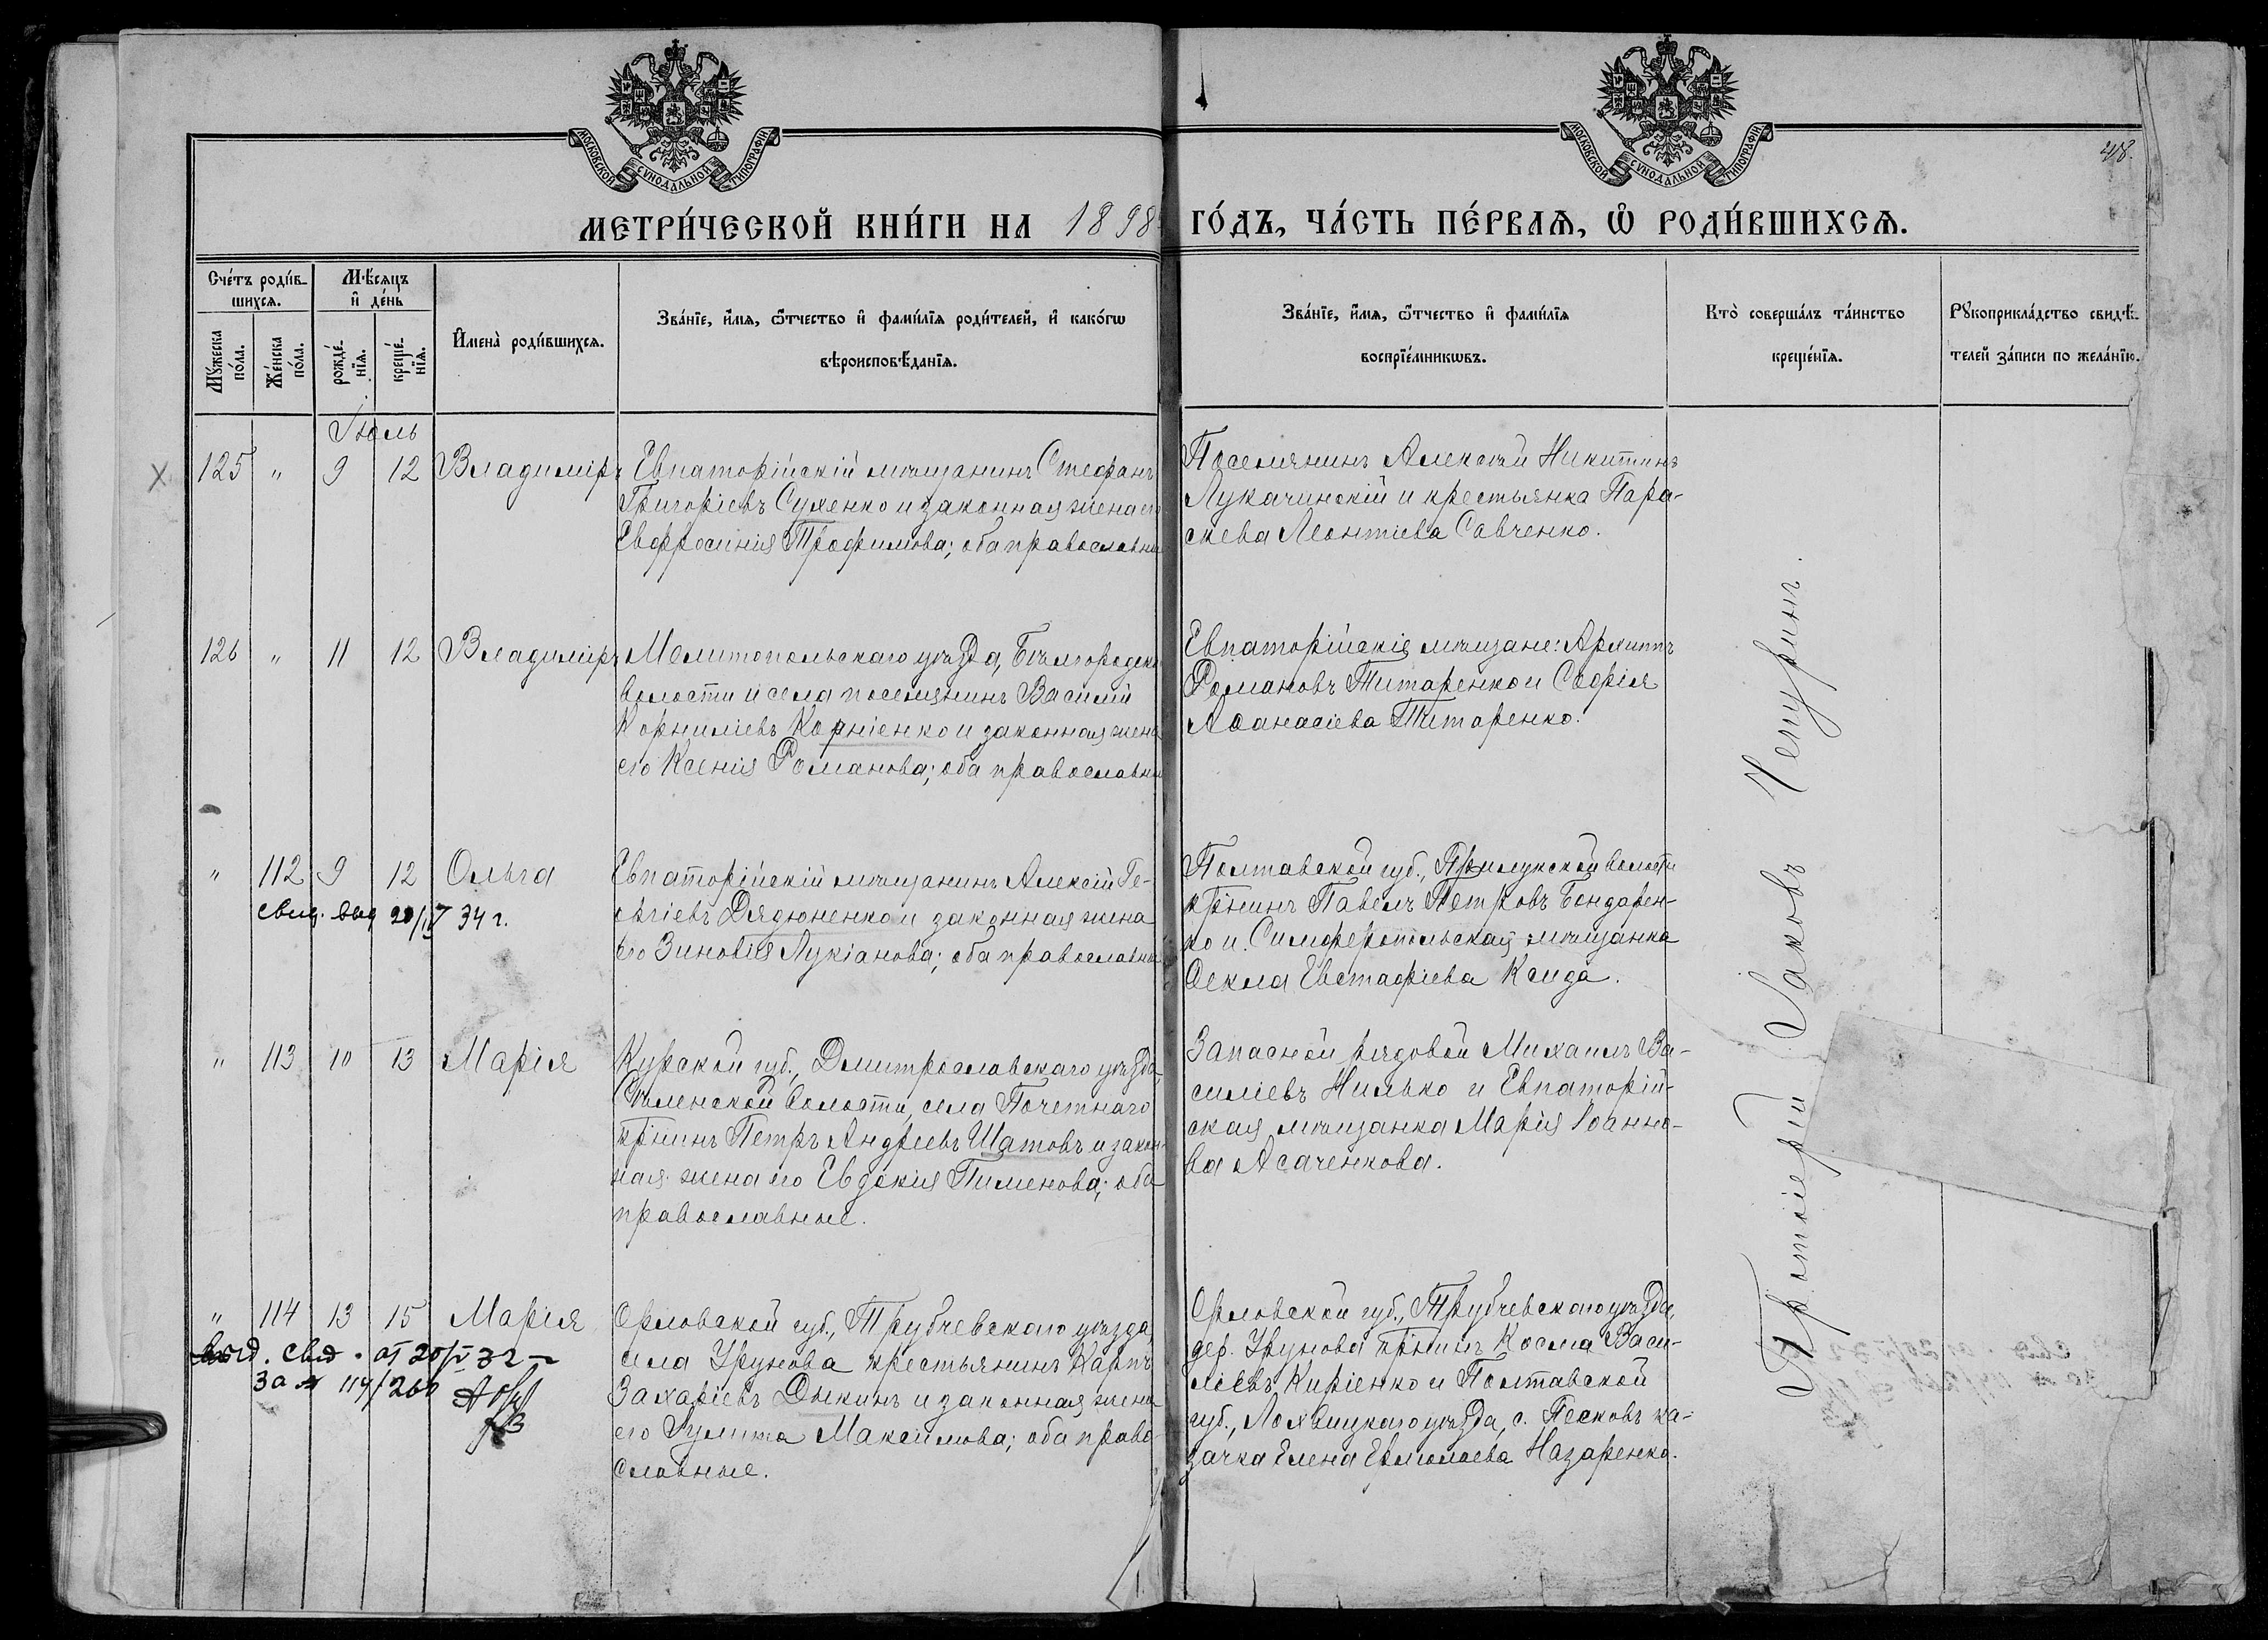 МОСКОВСКОЙ СѴНОДАЛЬНОЙ ТИПОГРАФІИ
МОСКОВСКОЙ СѴНОДАЛЬНОЙ ТИПОГРАФІИ
48.
МЕТРИ́ЧЕСКОЙ КНИ́ГИ НА 1898 ГО́ДЪ, ЧА́СТЬ ПЕ́РВАѦ, Ѡ РОДИ́ВШИХСѦ.
Сче́тъ роди́в-
шихсѧ.
Мѣ́сѧцъ
и҆ де́нь
Мꙋ́жеска
по́ла.
Же́нска
по́ла.
рожде́-
нїѧ.
креще́-
нїѧ.
И҆мена̀ роди́вшихсѧ.
Зва́нїе, и҆́мѧ, ѻ҆́тчество и҆ фами́лїѧ роди́телей, и҆ како́гѡ
вѣроисповѣ́данїѧ.
Зва́нїе, и҆́мѧ, ѻ҆́тчество и҆ фами́лїѧ
воспрїе́мникѡвъ.
Кто̀ соверша́лъ та́инство
креще́нїѧ.
Рꙋкоприкла́дство свидѣ́-
телей за́писи по жела́нїю.
Іюль
125 " 9 12 Владиміръ
Евпаторійскій мѣщанинъ Стефанъ
Григоріевъ Сухенко и законная жена его
Евфросинія Трофимова; оба православны
Поселянинъ Алексѣй Никитинъ
Лукачинскій и крестьянка Пара-
скева Леонтіева Савченко.
126 " 11 12 Владиміръ
Мелитопольскаго уѣзда, Бѣлгородск
волости и села поселянинъ Василій
Корниліевъ Корніенко и законная жена
его Ксенія Романова; оба православны
Евпаторійскіе мѣщане: Архипъ
Романовъ Титаренко и Софія
Аѳанасіева Титаренко.
" 112 9 12 Ольга
свид. выд 20/IV 34 г.
Евпаторійскій мѣщанинъ Алексій Ге-
оргіевъ Дядюненко и законная жена
его Зиновія Лукіанова; оба православны
Полтавской губ., Прилукской волости
кр̃нинъ Павелъ Петровъ Бондарен-
ко и Симферопольская мѣщанка
Ѳекла Евстафіева Ксида.
" 113 10 13 Марія
Курской губ., Дмитрославскаго уѣзда,
волости, села Почетнаго
кр̃нинъ Петръ Андреевъ Шатовъ и закон-
ная жена его Евдокия Пименова; оба
православные.
Запасной рядовой Михаилъ Ва-
силіевъ Нилько и Евпаторій-
ская мѣщанка Марія Іоанно-
ва Асаченкова.
" 114 13 15 Марія
выд. свид. от 20/V 32
за № 114/260
Орловской губ., Трубчевскаго уѣзда,
села Урунова крестьянинъ Карпъ
Захаріевъ Дыкинъ и законная жена
его Іулитта Максимова; оба право
славные.
Орловской губ., Трубчевскаго уѣзда,
дер. Урунова кр̃нинъ Косма Васи-
ліевъ Киріенко и Полтавской
губ., Лохвицкаго уѣзда, с. Песковъ ка-
зачка Елена Ермолаева Назаренко.
Протоіерей Іаковъ Чепуринъ.